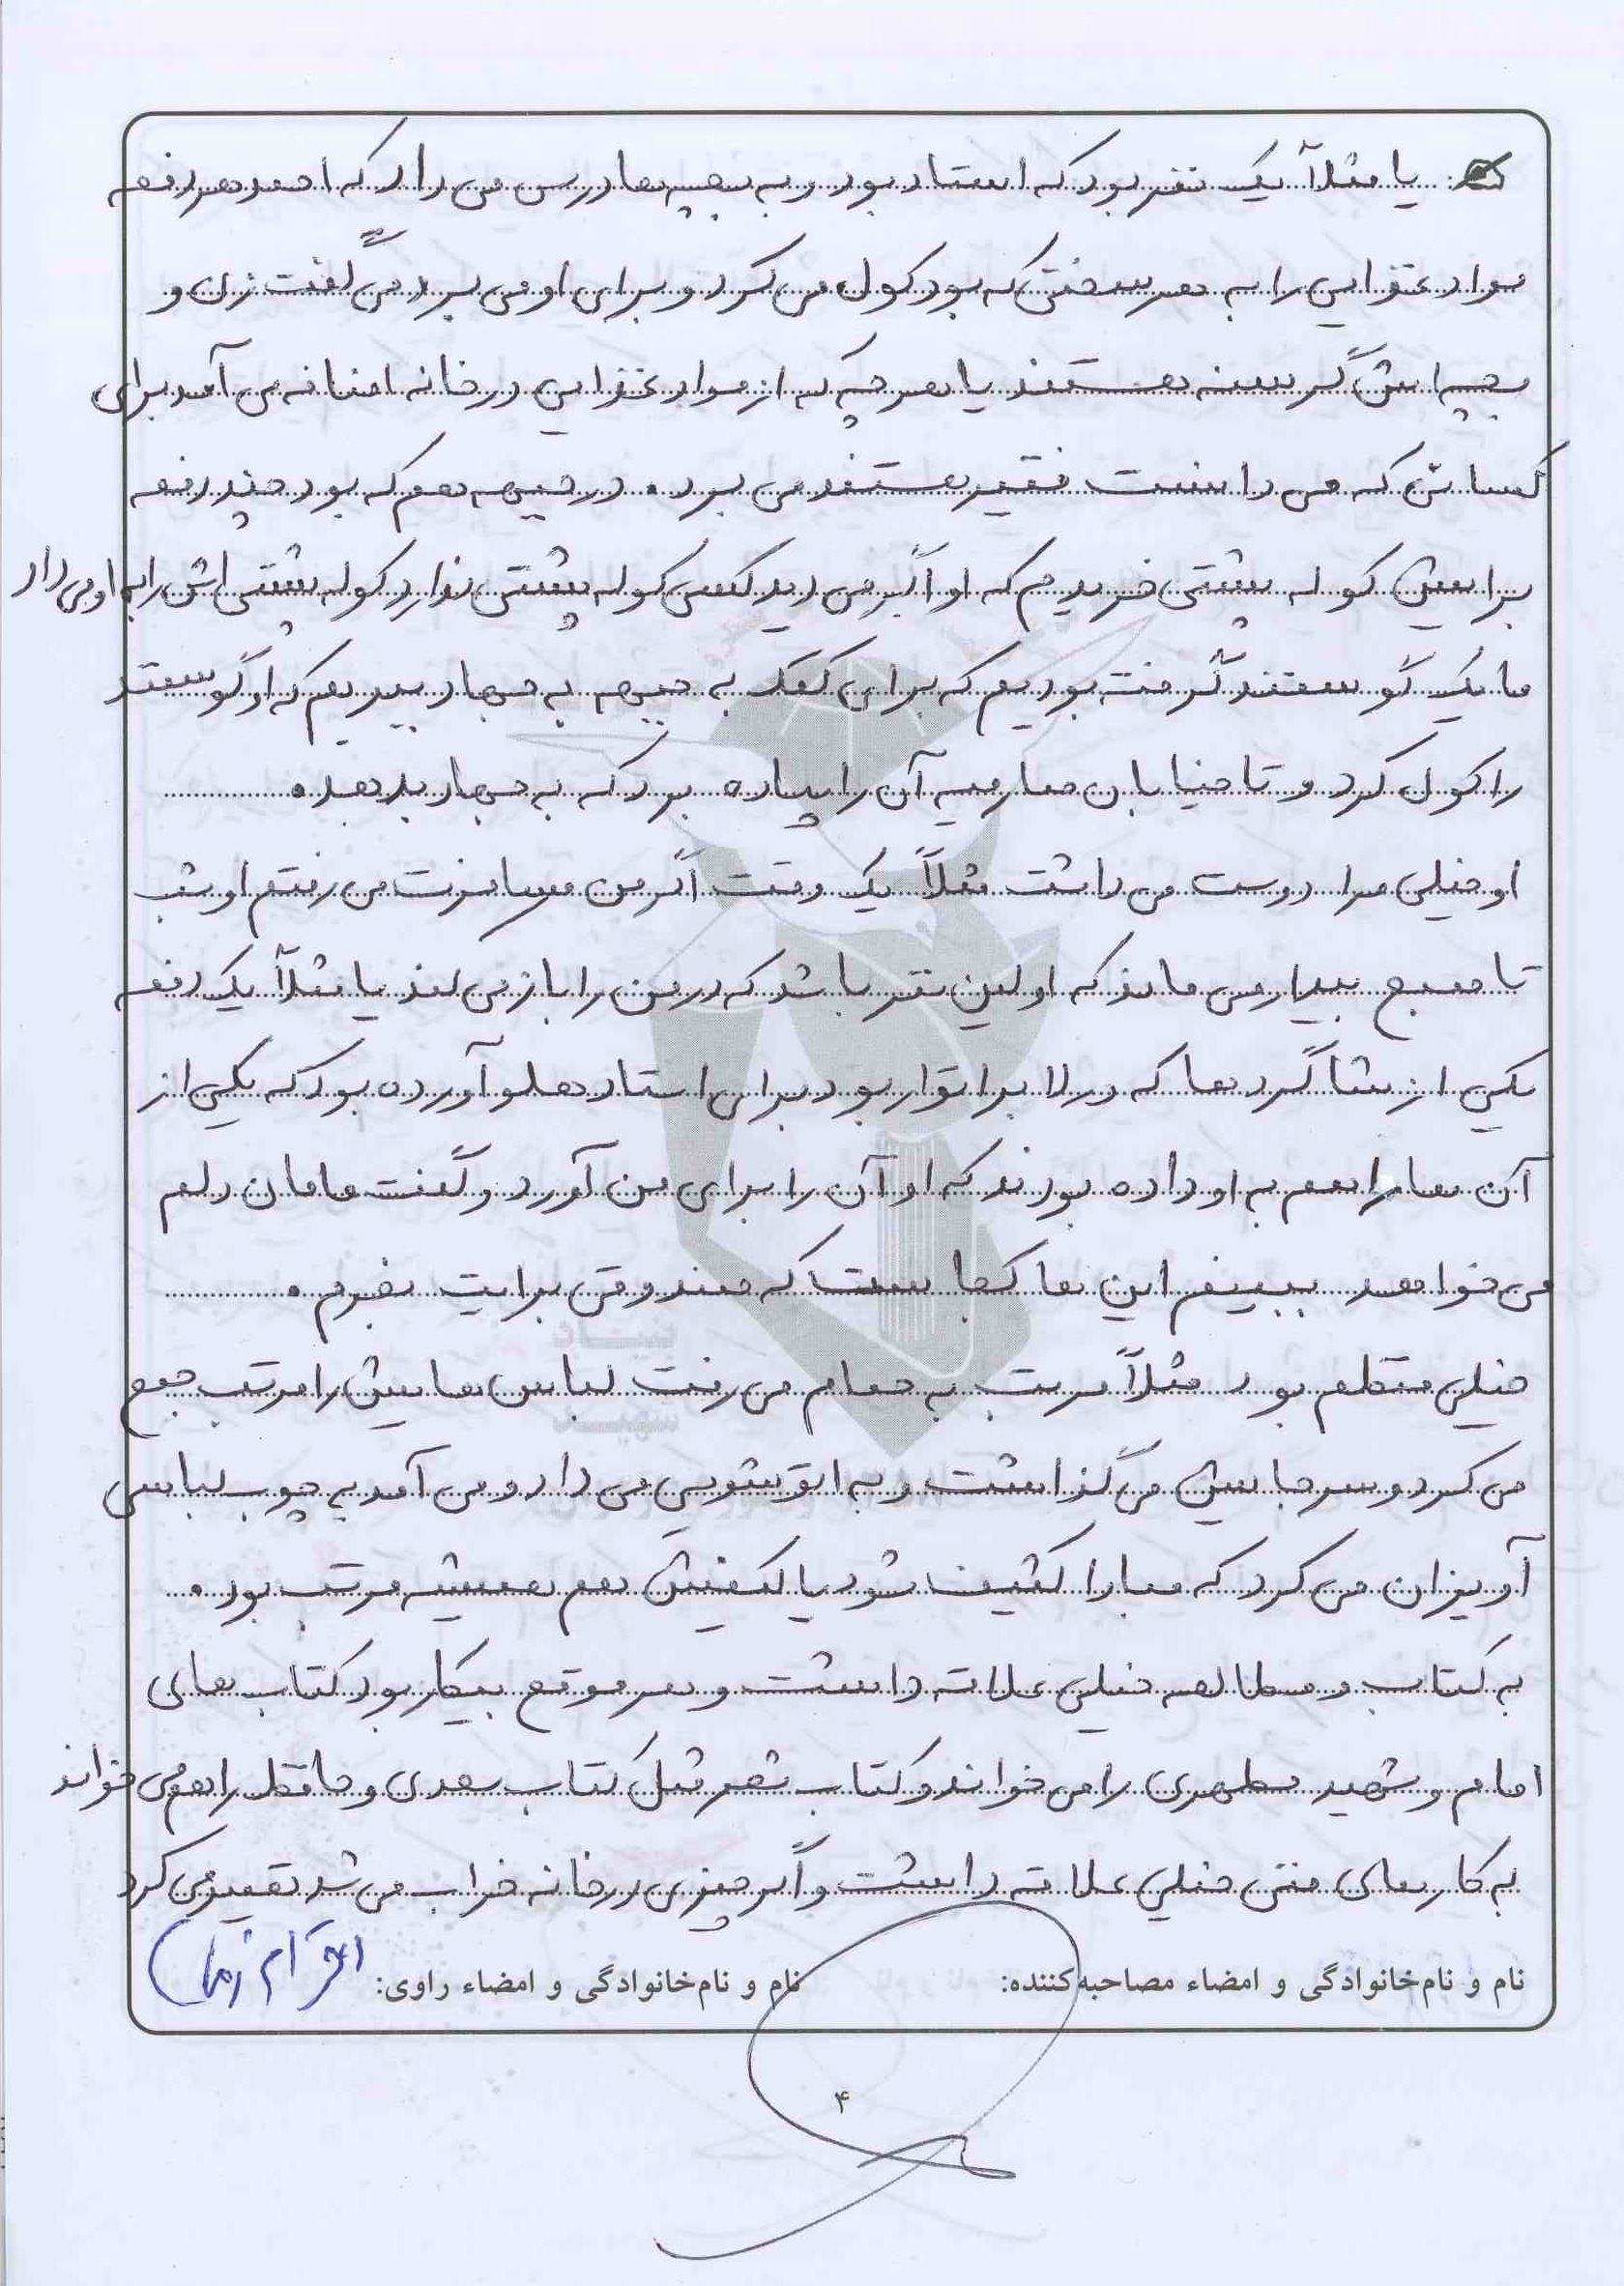 یا مثلاً یک نفر بود که استاد بود و به بچه ها درس می داد که احمد هر دفعه
مواد غذایی را به هر سختی که بود کول می کرد و برای او می برد می گفت زن و
بچه اش گرسنه هستند یا هر چه که از مواد غذایی در خانه اضافه می آمد برای
کسانی که می دانست فقیر هستند می برد. در جبهه هم که بود چند دفعه
برایش کوله پشتی خریدم که او اگر می دید کسی کوله پشتی ندارد کوله پشتی اش را به او می داد
ما یک گوسفند گرفته بودیم که برای کمک به جبهه به جهاد بدهیم که او گوسفند
را کول کرد و تا خیابان صارمیه آن را پیاده برد که به جهاد بدهد.
او خیلی مرا دوست می داشت مثلاً یک وقت اگر من مسافرت می رفتم او شب
تا صبح بیدار می ماند که اولین نفر باشد که در من را باز می کند یا مثلاً یک دفعه
یکی از شاگردها که در لابراتوار بود برای استاد هلو آورده بود که یکی از
آن ها را هم به او داده بودند که او آن را برای من آورد و گفت مامان دلم
می خواهد ببینم این ها کجاست که صندوقی برایت بخرم.
خیلی منظم بود مثلاً مرتب به حمام می رفت لباس هایش را مرتب جمع
می کرد و سر جایش می گذاشت و به اتوشویی می داد و می آمد به چوب لباسی
آویزان می کرد که مبادا کثیف شود یا کفش هم همیشه مرتب بود.
به کتاب و مطالعه خیلی علاقه داشت و هر موقع بیکار بود کتاب های
امام و شهید مطهری را می خواند و کتاب شعر مثل کتاب سعدی و حافظ را هم می خواند
به کارهای فنی خیلی علاقه داشت و اگر چیزی در خانه خراب می شد تعمیر می کرد
نام و نام‌خانوادگی و امضاء مصاحبه‌کننده: نام و نام‌خانوادگی و امضاء راوی:
۴